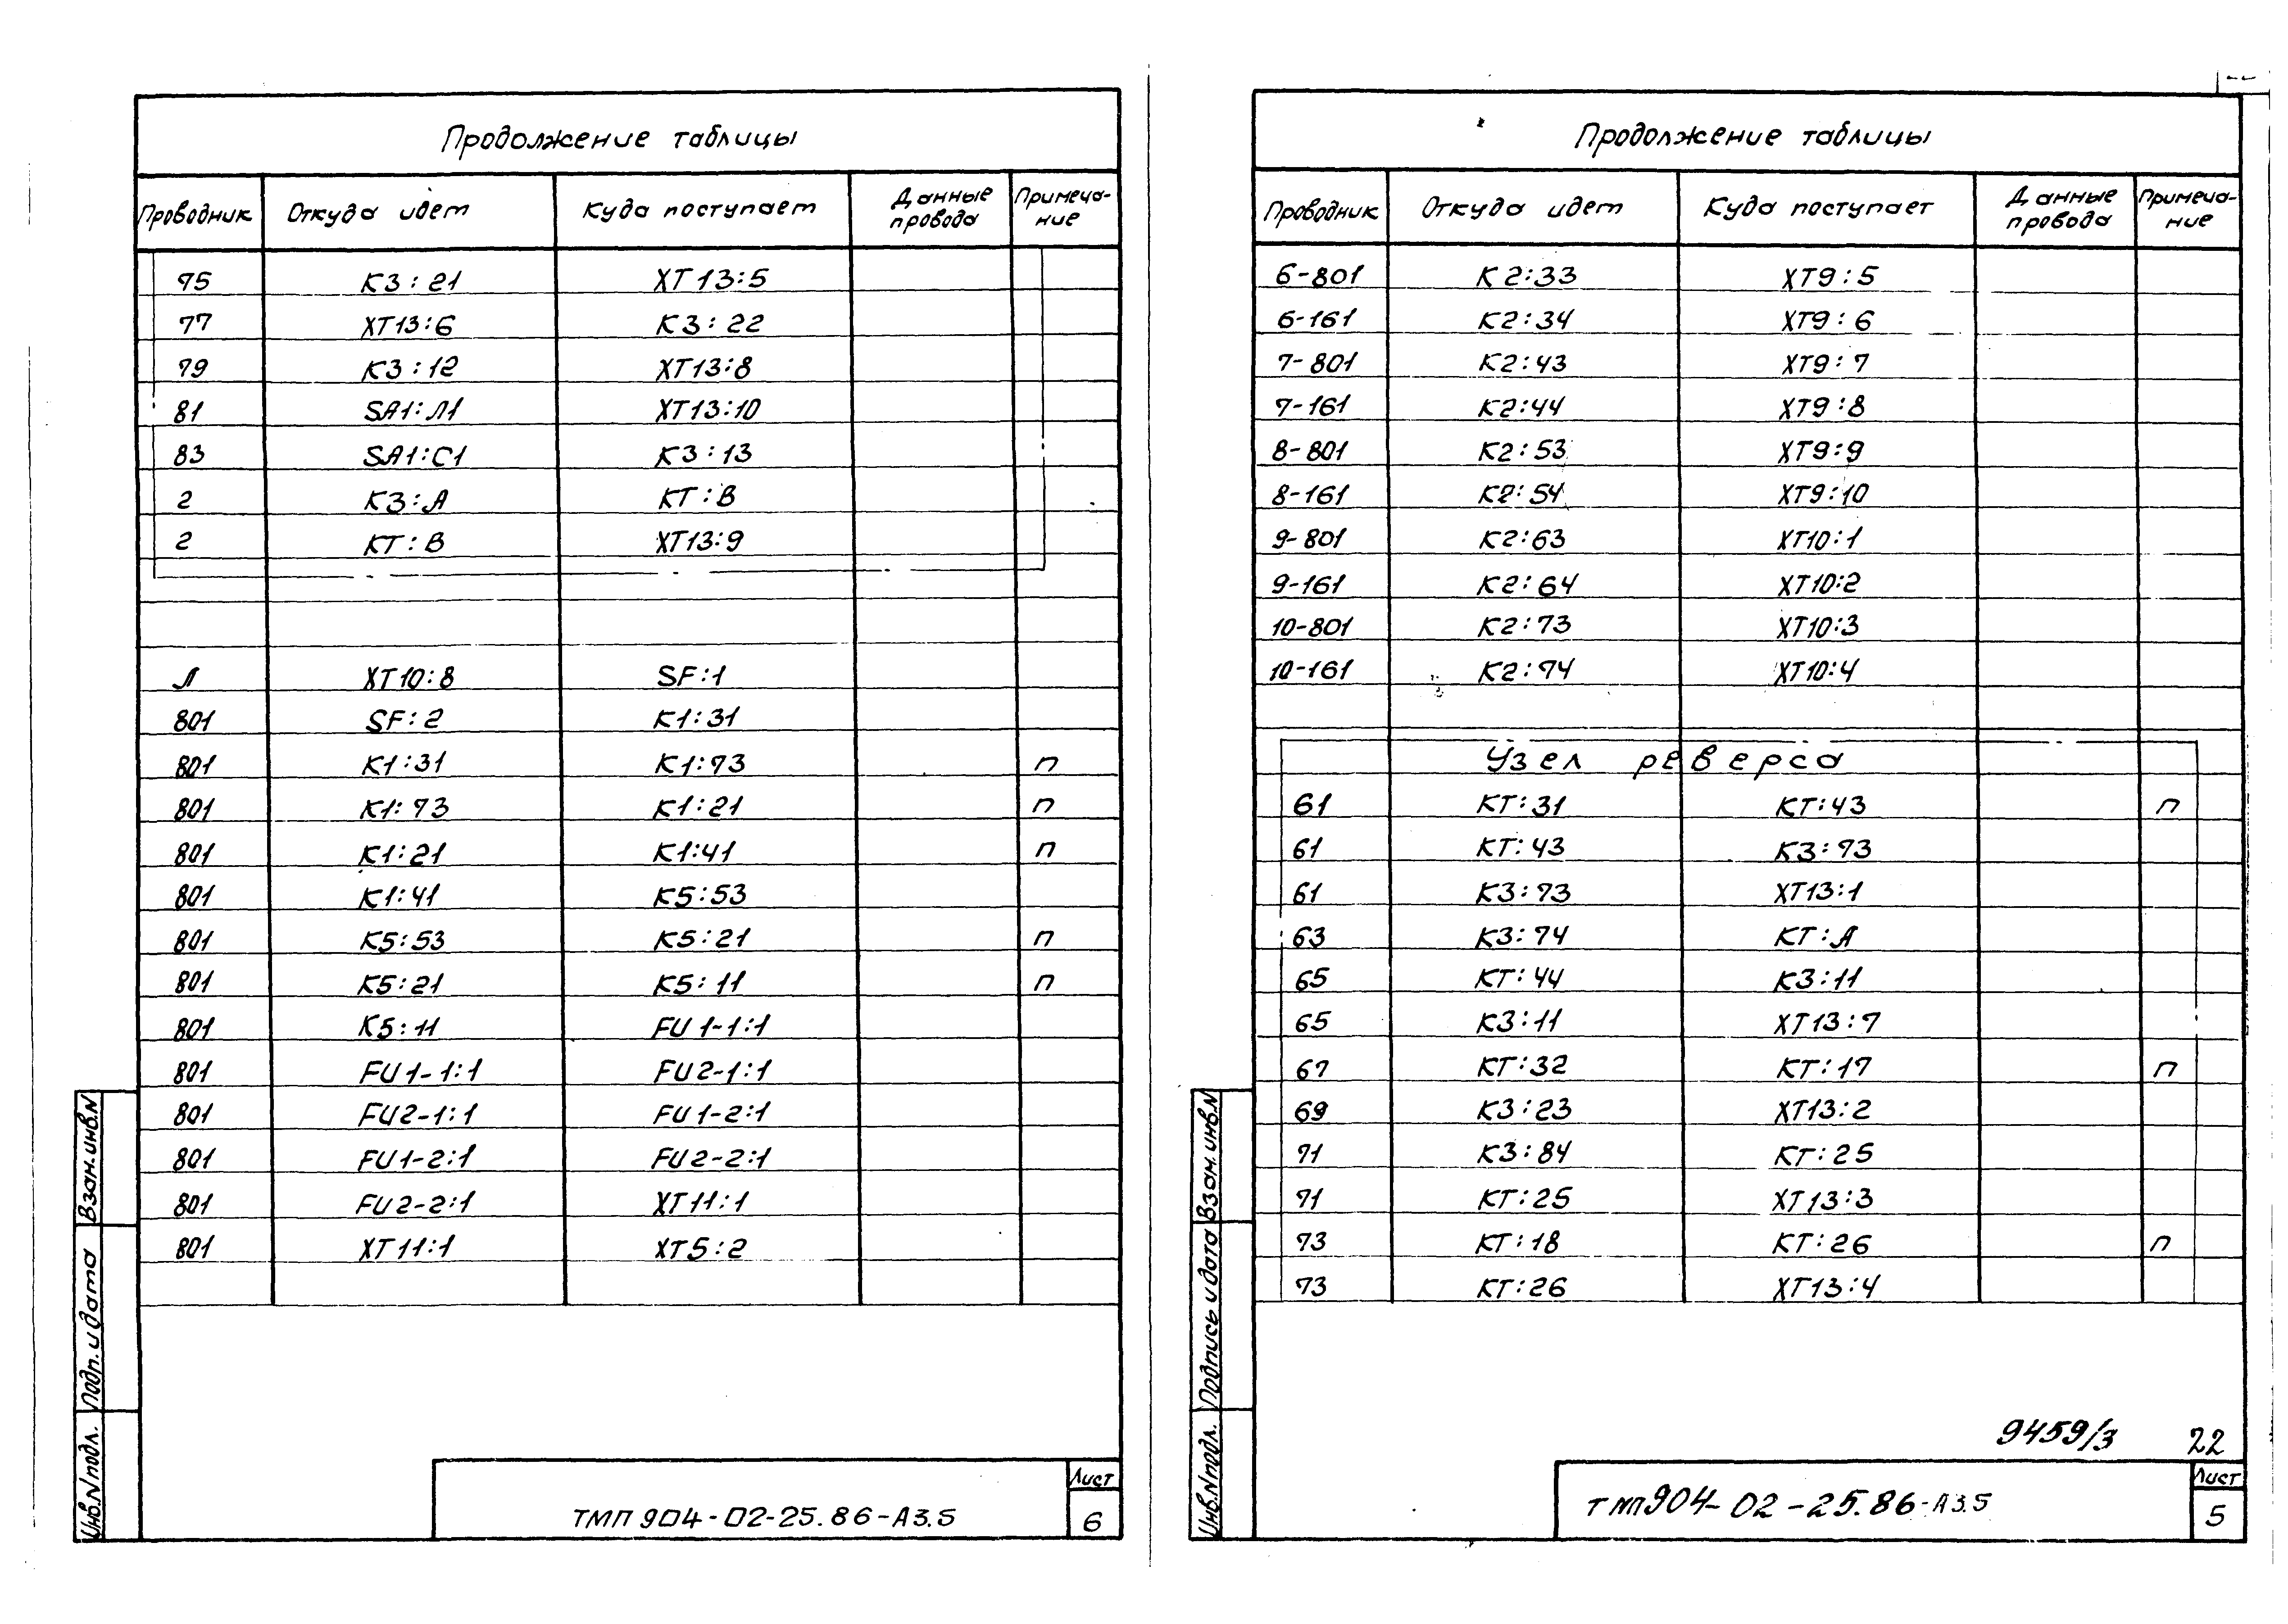 Продолжение таблицы
Проводник Откуда идет Куда поступает Данные провода Примеча-ние
75 К3:21 ХТ13:5
77 ХТ13:6 К3:22
79 К3:12 ХТ13:8
81 SA1:Л1 ХТ13:10
83 SA1:С1 К3:13
2 К3:А КТ:В
2 КТ:В ХТ13:9
Л ХТ10:8 SF:1
801 SF:2 К1:31
801 К1:31 К1:73 п
801 К1:73 К1:21 п
801 К1:21 К1:41 п
801 К1:41 К5:53
801 К5:53 К5:21 п
801 К5:21 К5:11 п
801 К5:11 FU1-1:1
801 FU1-1:1 FU2-1:1
801 FU2-1:1 FU1-2:1
801 FU1-2:1 FU2-2:1
801 FU2-2:1 ХТ11:1
801 ХТ11:1 ХТ5:2
Взам.инв.N
Подп. и дата
Инв.N подл.
ТМП 904-02-25.86-А3.5
Лист
6
Продолжение таблицы
Проводник Откуда идет Куда поступает Данные провода Примеча-ние
6-801 К2:33 ХТ9:5
6-161 К2:34 ХТ9:6
7-801 К2:43 ХТ9:7
7-161 К2:44 ХТ9:8
8-801 К2:53 ХТ9:9
8-161 К2:54 ХТ9:10
9-801 К2:63 ХТ10:1
9-161 К2:64 ХТ10:2
10-801 К2:73 ХТ10:3
10-161 К2:74 ХТ10:4
Узел реверса
61 КТ:31 КТ:43 п
61 КТ:43 К3:73
61 К3:73 ХТ13:1
63 К3:74 КТ:А
65 КТ:44 К3:11
65 К3:11 ХТ13:7
67 КТ:32 КТ:17 п
69 К3:23 ХТ13:2
71 К3:84 КТ:25
71 КТ:25 ХТ13:3
73 КТ:18 КТ:26 п
73 КТ:26 ХТ13:4
Взам.инв.N
Подпись и дата
Инв.N подл.
9459/3 22
ТМП904-02-25.86-А3.5
Лист
5